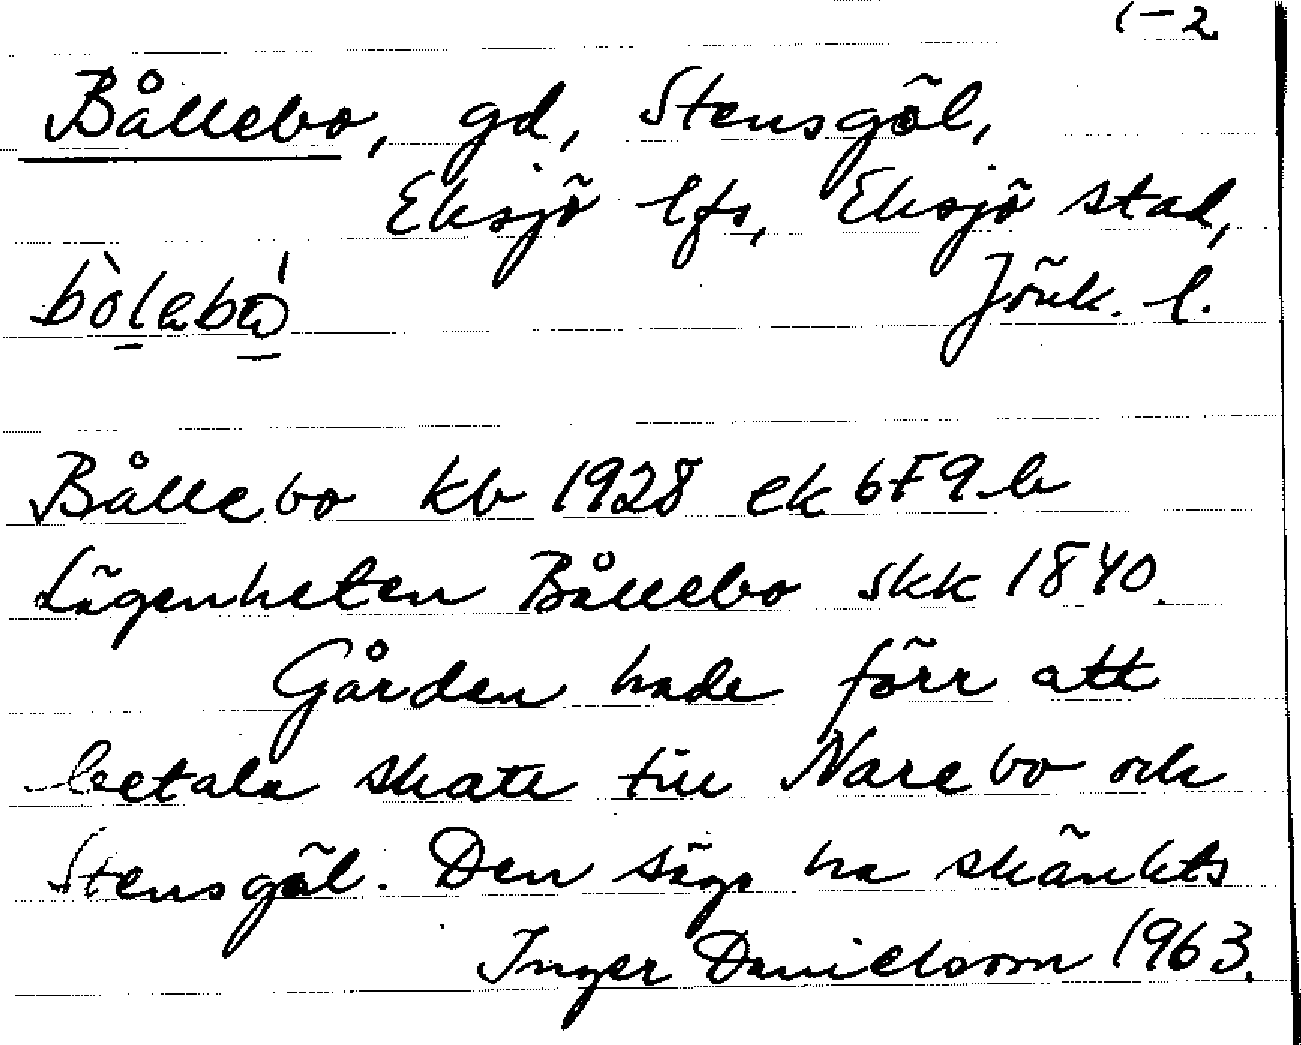 1-2
Bållebo, gd, Stensgöl,
Eksjö lfs, Eksjö stad,
Jönk. l.
Bållebo kb 1928 ek 6F9b
Lägenheten Bållebo skk 1840.
Gården hade förr att
betala skatt till Narebo och
Stensgöl. Den sägs ha skänkts
Inger Danielsson 1963.